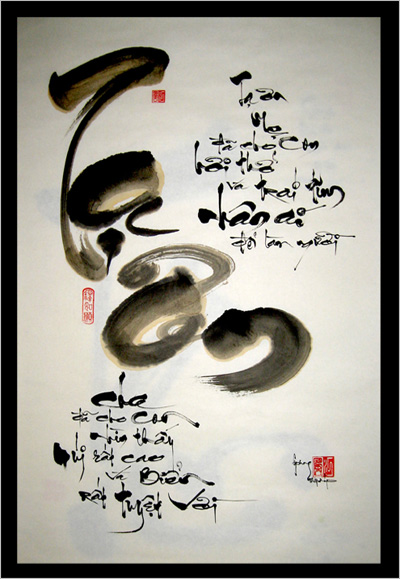 Tạ Ơn
Tạ ơn
Mẹ
đã cho Con
hơi thở
và trái tim
nhân ái
để làm người
Cha
đã cho Con
nhìn thấy
núi rất cao
và Biển
rất tuyệt vời